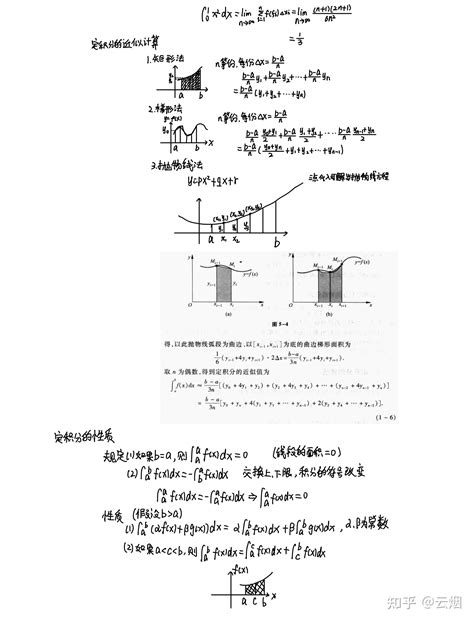 ∫₀¹ x²dx = lim_{n→∞} Σ_{i=1}^{n} f(ξᵢ)Δxᵢ = lim_{n→∞} (n+1)(2n+1)/6n²
= 1/3
定积分的近似计算
1.矩形法
n等份,每份Δx = (b-a)/n
(b-a)/n y₁ + (b-a)/n y₂ + ⋯ + (b-a)/n yₙ
= (b-a)/n (y₁+y₂+⋯+yₙ)
a b x
2.梯形法
y=f(x)
n等份,每份Δx = (b-a)/n
(b-a)/n (y₀+y₁)/2 + (b-a)/n (y₁+y₂)/2 + ⋯ (b-a)/n (yₙ₋₁+yₙ)/2
= (b-a)/n ((y₀+yₙ)/2 + y₁+y₂+⋯+yₙ₋₁)
a b x
3.抛物线法
y=px²+qx+r
a x₁ x₂ b
y Mᵢ₋₁ Mᵢ y=f(x)
yᵢ₋₁ yᵢ
O xᵢ₋₁ xᵢ x
(a)
(b)
图 5-4
得,以此抛物线弧段为曲边,以[xᵢ₋₁,xᵢ₊₁]为底的曲边梯形面积为
1/6 (yᵢ₋₁+4yᵢ+yᵢ₊₁)·2Δx = (b-a)/3n (yᵢ₋₁+4yᵢ+yᵢ₊₁).
取 n 为偶数,得到定积分的近似值为
∫ₐᵇ f(x)dx ≈ (b-a)/3n [(y₀+4y₁+y₂)+(y₂+4y₃+y₄)+⋯+(yₙ₋₂+4yₙ₋₁+yₙ)]
= (b-a)/3n [y₀+yₙ+4(y₁+y₃+⋯+yₙ₋₁)+2(y₂+y₄+⋯+yₙ₋₂)].
(1-6)
定积分的性质
规定(1)如果b=a,则∫ₐᵃ f(x)dx=0 (线段的面积=0)
(2)∫ₐᵇ f(x)dx=-∫ᵇₐ f(x)dx 交换上,下限,积分的符号改变
∫ₐᵃ f(x)dx=-∫ₐᵃ f(x)dx ⇒ ∫ₐᵃ f(x)dx=0
性质 (假设b>a)
(1)∫ₐᵇ (αf(x)+βg(x))dx = α∫ₐᵇ f(x)dx+β∫ₐᵇ g(x)dx , α.β为常数
(2)如果a<c<b,则∫ₐᵇ f(x)dx=∫ₐᶜ f(x)dx+∫ᶜᵇ f(x)dx
f(x)
a c b x
知乎 @云烟